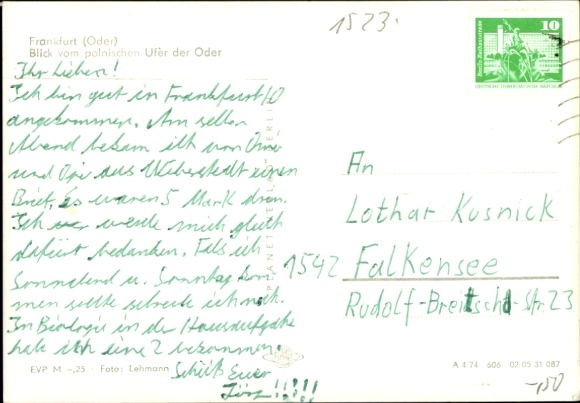 1523.
Frankfurt (Oder)
Blick vom polnischen Ufer der Oder
10
Ihr Lieben!
Ich bin gut in Frankfurt/O
angekommen. Am selben
Abend bekam ich von Omi
und Opi aus Weberstedt einen
Brief. Es waren 5 Mark drin.
Ich werde mich gleich
dafür bedanken. Falls ich
Sonnabend u. Sonntag kom-
men sollte schreibe ich noch.
In Biologie in der Hausaufgabe
hab ich eine 2 bekommen.
Schüß Euer
Jörg!!!!!
An
Lothar Kusnick
1542 Falkensee
Rudolf-Breitscheid-Str. 23
PLANET VERLAG BERLIN
EVP M -,25 · Foto: Lehmann
A 4 74 606 02 05 31 087
-,50